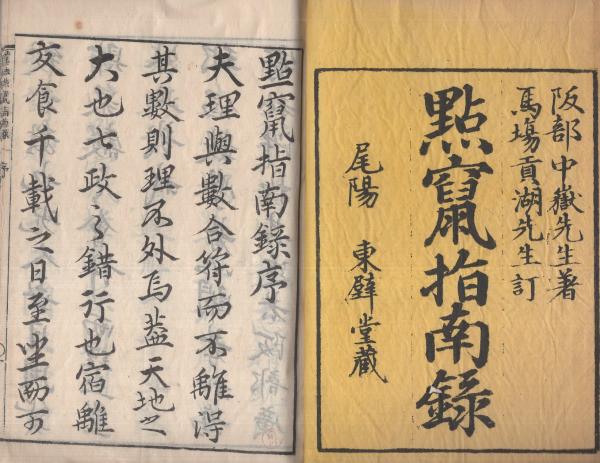 阪部中嶽先生著
馬場貢湖先生訂
點竄指南錄
尾陽 東壁堂藏
點竄指南錄序
夫理與數合符而不離得
其數則理不外焉蓋天地之
大也七政之錯行也宿離
交食千載之日至坐而可